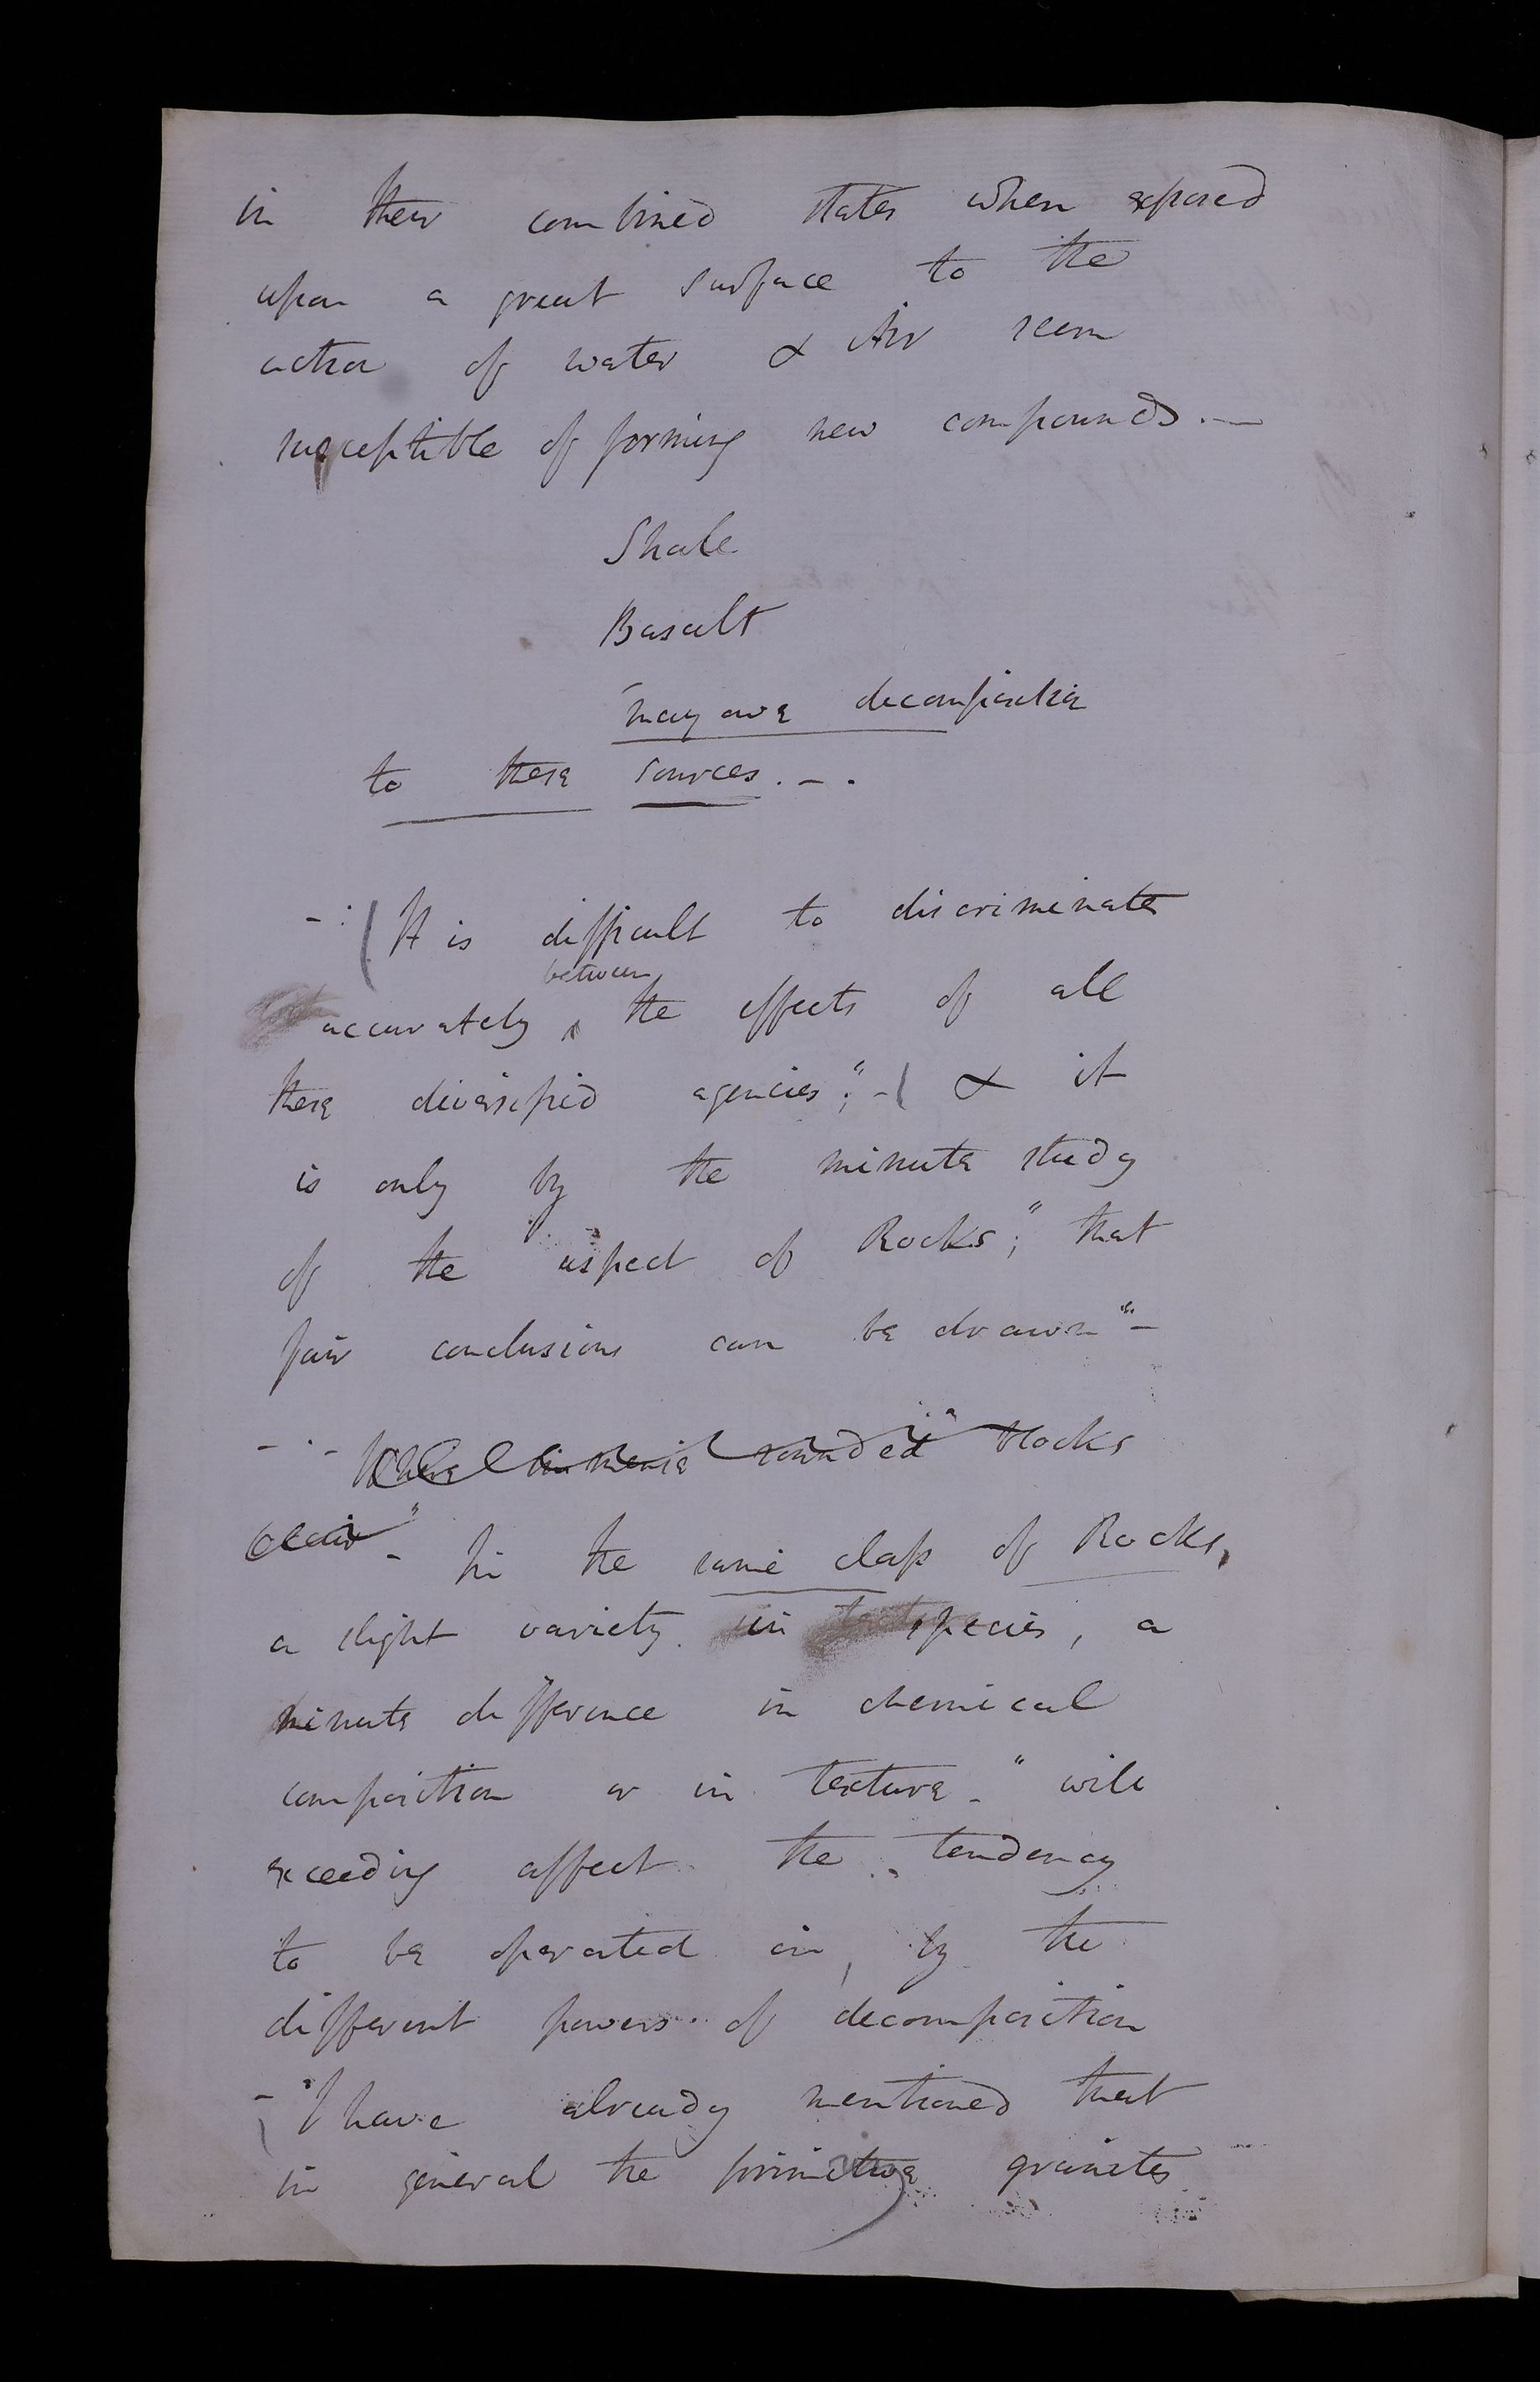 in their combined states when exposed
upon a great surface to the
action of water & Air seem
susceptible of forming new compounds. —
Shale
Basalt
may owe decomposition
to these sources. – .
– : (It is difficult to discriminate
between
accurately ^ the effects of all
these diversified agencies"; – ( & it
is only by the minute study
of the aspect of Rocks"; that
fair conclusions can be drawn" –
– · – Where immense rounded" blocks
occur" – In the same class of Rocks,
a slight variety in species, a
minute difference in chemical
composition or in texture – " will
exceeding affect the tendency
to be operated on, by the
different powers of decomposition
– "I have already mentioned that
in general the primitive granites